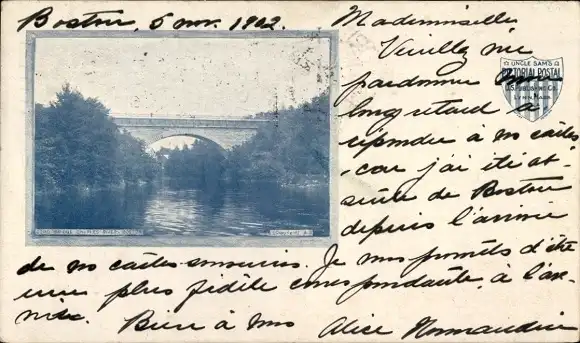 Boston, 5 nov. 1902.
Mademoiselle
Veuillez me
pardonner mon
long retard à
répondre à vos cartes,
car j'ai été ab-
sente de Boston
depuis l'arrivée
de vos cartes-souvenirs. Je vous promets d'être
une plus fidèle correspondante, à l'ave-
nir. Bien à vous
Alice Normandin
UNCLE SAM'S
PICTORIAL POSTAL
U.S. PUBLISHING CO.
LYNN, MASS.
BRIDGE, CHARLES RIVER, BOSTON